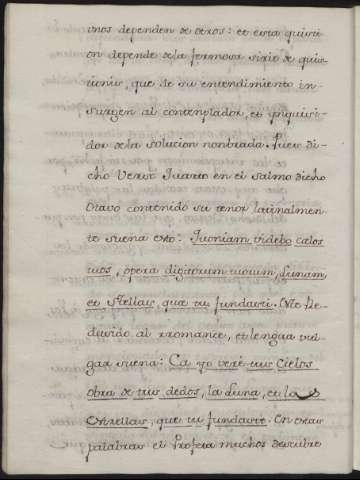 unos dependen de otros: et esta quisti
on depende dela fermosa sirie de quis
tiones, que de su entendimiento in
surgen al contemplador, et ynquisi
dor dela solucion nonbrada. Pues di
cho Verso Quarto en el Salmo dicho
Otavo contenido su tenor latinalmen
te suena esto: Quoniam videbo celos
tuos, opera digitorum tuorum, Lunam,
et Stellas, quae tu fundasti. Este Re
ducido al rromance, et lengua vul
gar suena: Ca yo veré tus Cielos
obra de tus dedos, la Luna, et las
Estrellas, que tu fundaste. En estas
palabras el Profeta muchos descubre